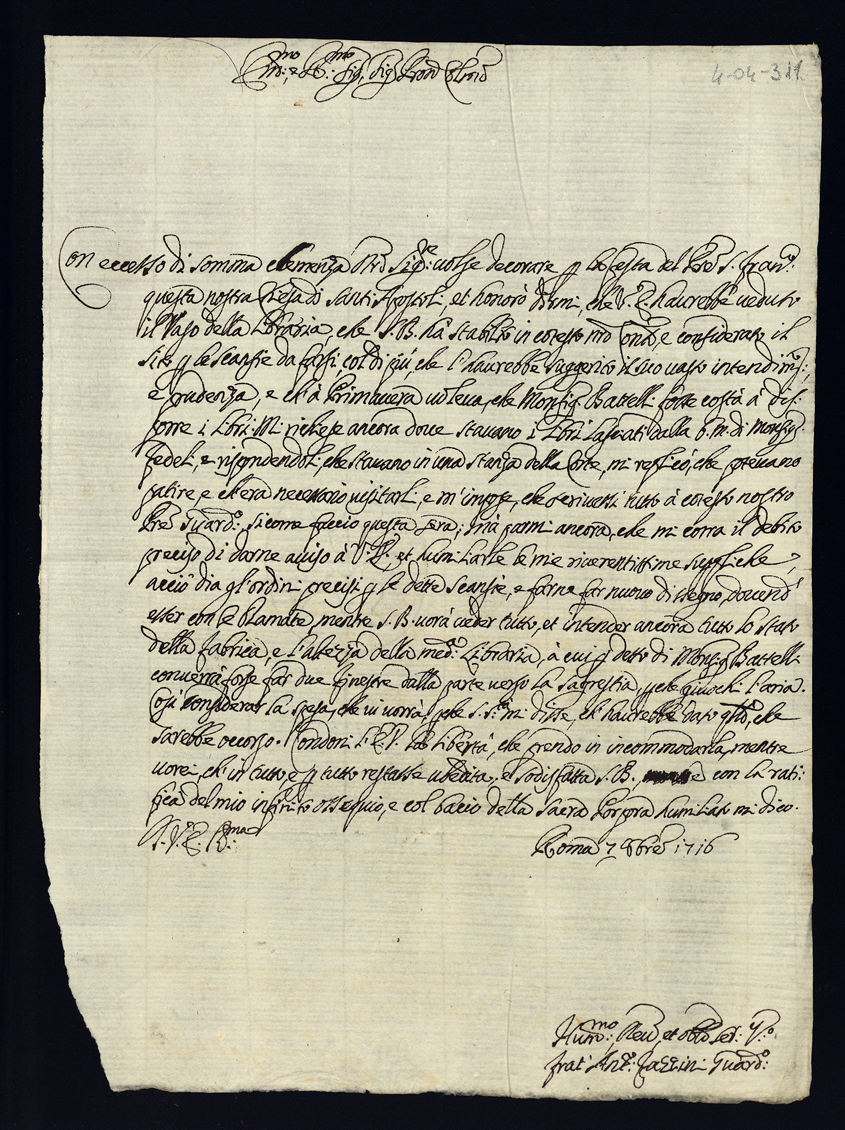 Em:mo e R:mo Sig: Sig: Pron Colmo
4-04-311
Con eccesso di somma clemenza Nro Sig:re volse decorare p la festa del Pre S. Fran:co
questa nostra Chiesa di Santi Apostoli, et honorò dirmi, che V. E. haurebbe veduto
il Vaso della Libraria, che S. B. hà stabilito in cotesto nro Conto, e considerato il
sito p le Scansie da farsi, col di più che l'haurebbe suggerito il suo vasto intendim:to,
e prudenza, e ch'à Primavera voleva, che Monsig Battelli fosse costà à dis:
porre i libri. Mi richiese ancora dove stavano i Libri lasciati dalla b. m. di Monsig:
Fedeli, e rispondendoli, che stavano in una stanza della Corte, mi replicò, che potevano
patire e ch'era necessario visitarli, e m'impose, che scrivessi tutto à cotesto nostro
Pre Guard:o, si come faccio questa sera; mà parmi ancora, che mi corra il debito
preciso di darne aviso à V. E. et humiliarle le mie riverentissime suppliche,
acciò dia gl'ordini precisi p le dette Scansie, e farne far nuovo disegno, dovend'
esser con le Ramate, mentre S. B. vorà veder tutto, et intender ancora tutto lo stato
della fabrica, e l'altezza della med:a Libraria, à cui p detto di Monsig Battelli
converrà forse far due finestre dalla parte verso la Sagrestia, pche giuochi l'aria.
Così considerar la spesa, che vi vorrà, pche S. S.tà mi disse, ch'haurebbe dato qto, che
sarebbe occorso. Condoni l'E. V. la libertà, che prendo in incommodarla, mentre
vorei, ch'in tutto, e p tutto restasse ubedita, e sodisfatta S. B., con la rati:
fica del mio infinito ossequio, e col bacio della sacra Porpora humiliato mi dico.
D. V. E. R:ma
Roma 7 8bre 1716
Hum:mo, Dev, et obb ser: v:o
frat' Ant:o Guard:o